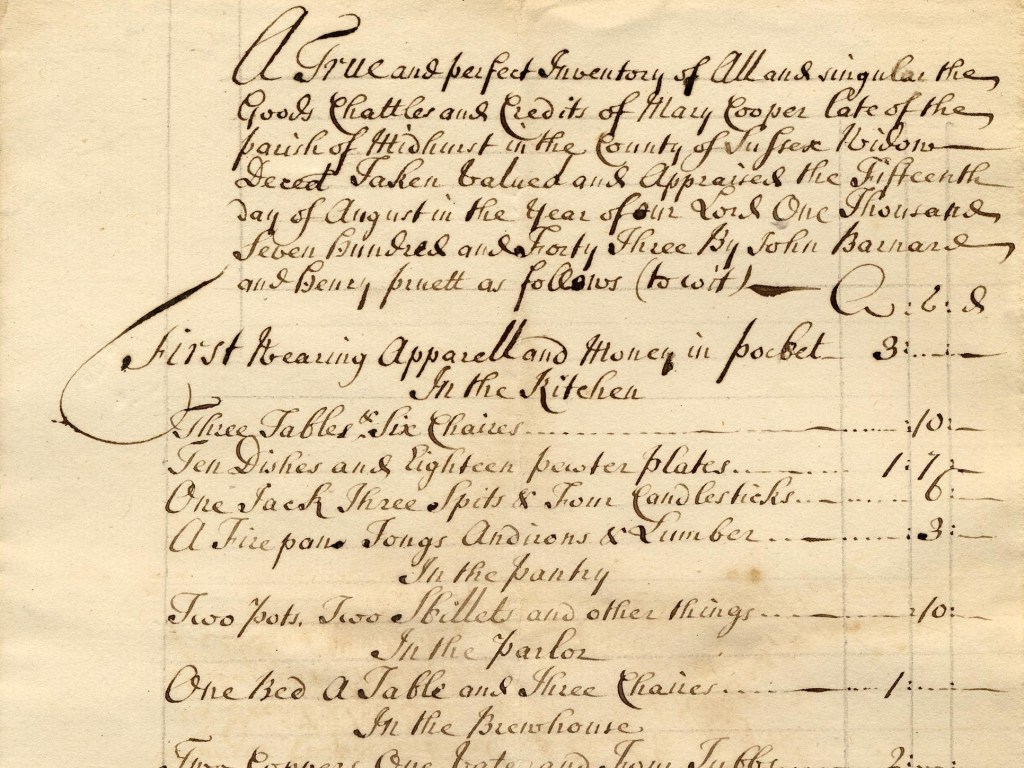 A True and perfect Inventory of All and singular the
Goods Chattles and Credits of Mary Cooper late of the
parish of Midhurst in the County of Sussex Widow
Deced Taken Valued and Appraised the Fifteenth
day of August in the Year of our Lord One Thousand
Seven Hundred and Forty Three By John Barnard
and Henry pruett as follows (to wit)
: : d
First Wearing Apparell and Money in pocket 3:
In the Kitchen
Three Tables & Six Chaires :10:
Ten Dishes and Eighteen pewter plates 1:7:
One Jack Three Spits & Four Candlesticks 6:
A Firepan Tongs Andirons & Lumber :3:
In the pantry
Two pots. Two Skillets and other things :10:
In the parlor
One Bed A Table and Three Chaires 1:
In the Brewhouse
Two Coppers One Vate and Four Tubbs 2: